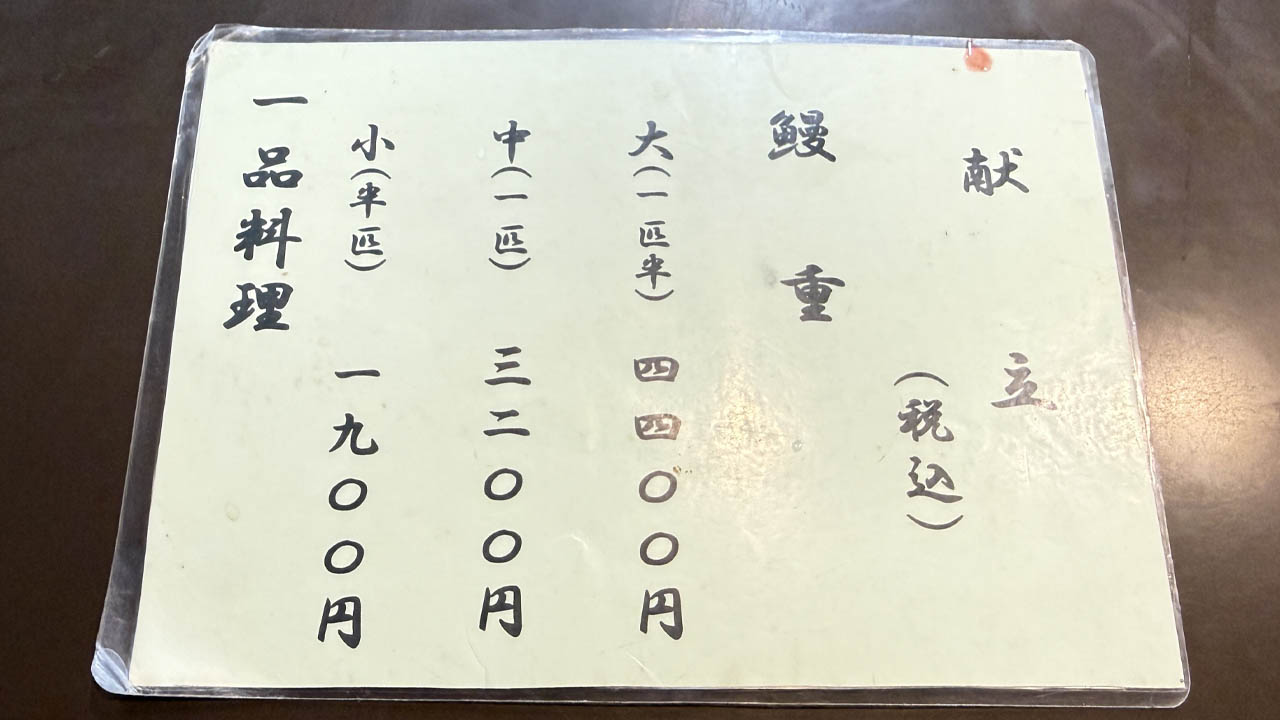 献立
(税込)
鰻重
大(一匹半) 四四〇〇円
中(一匹) 三二〇〇円
小(半匹) 一九〇〇円
一品料理